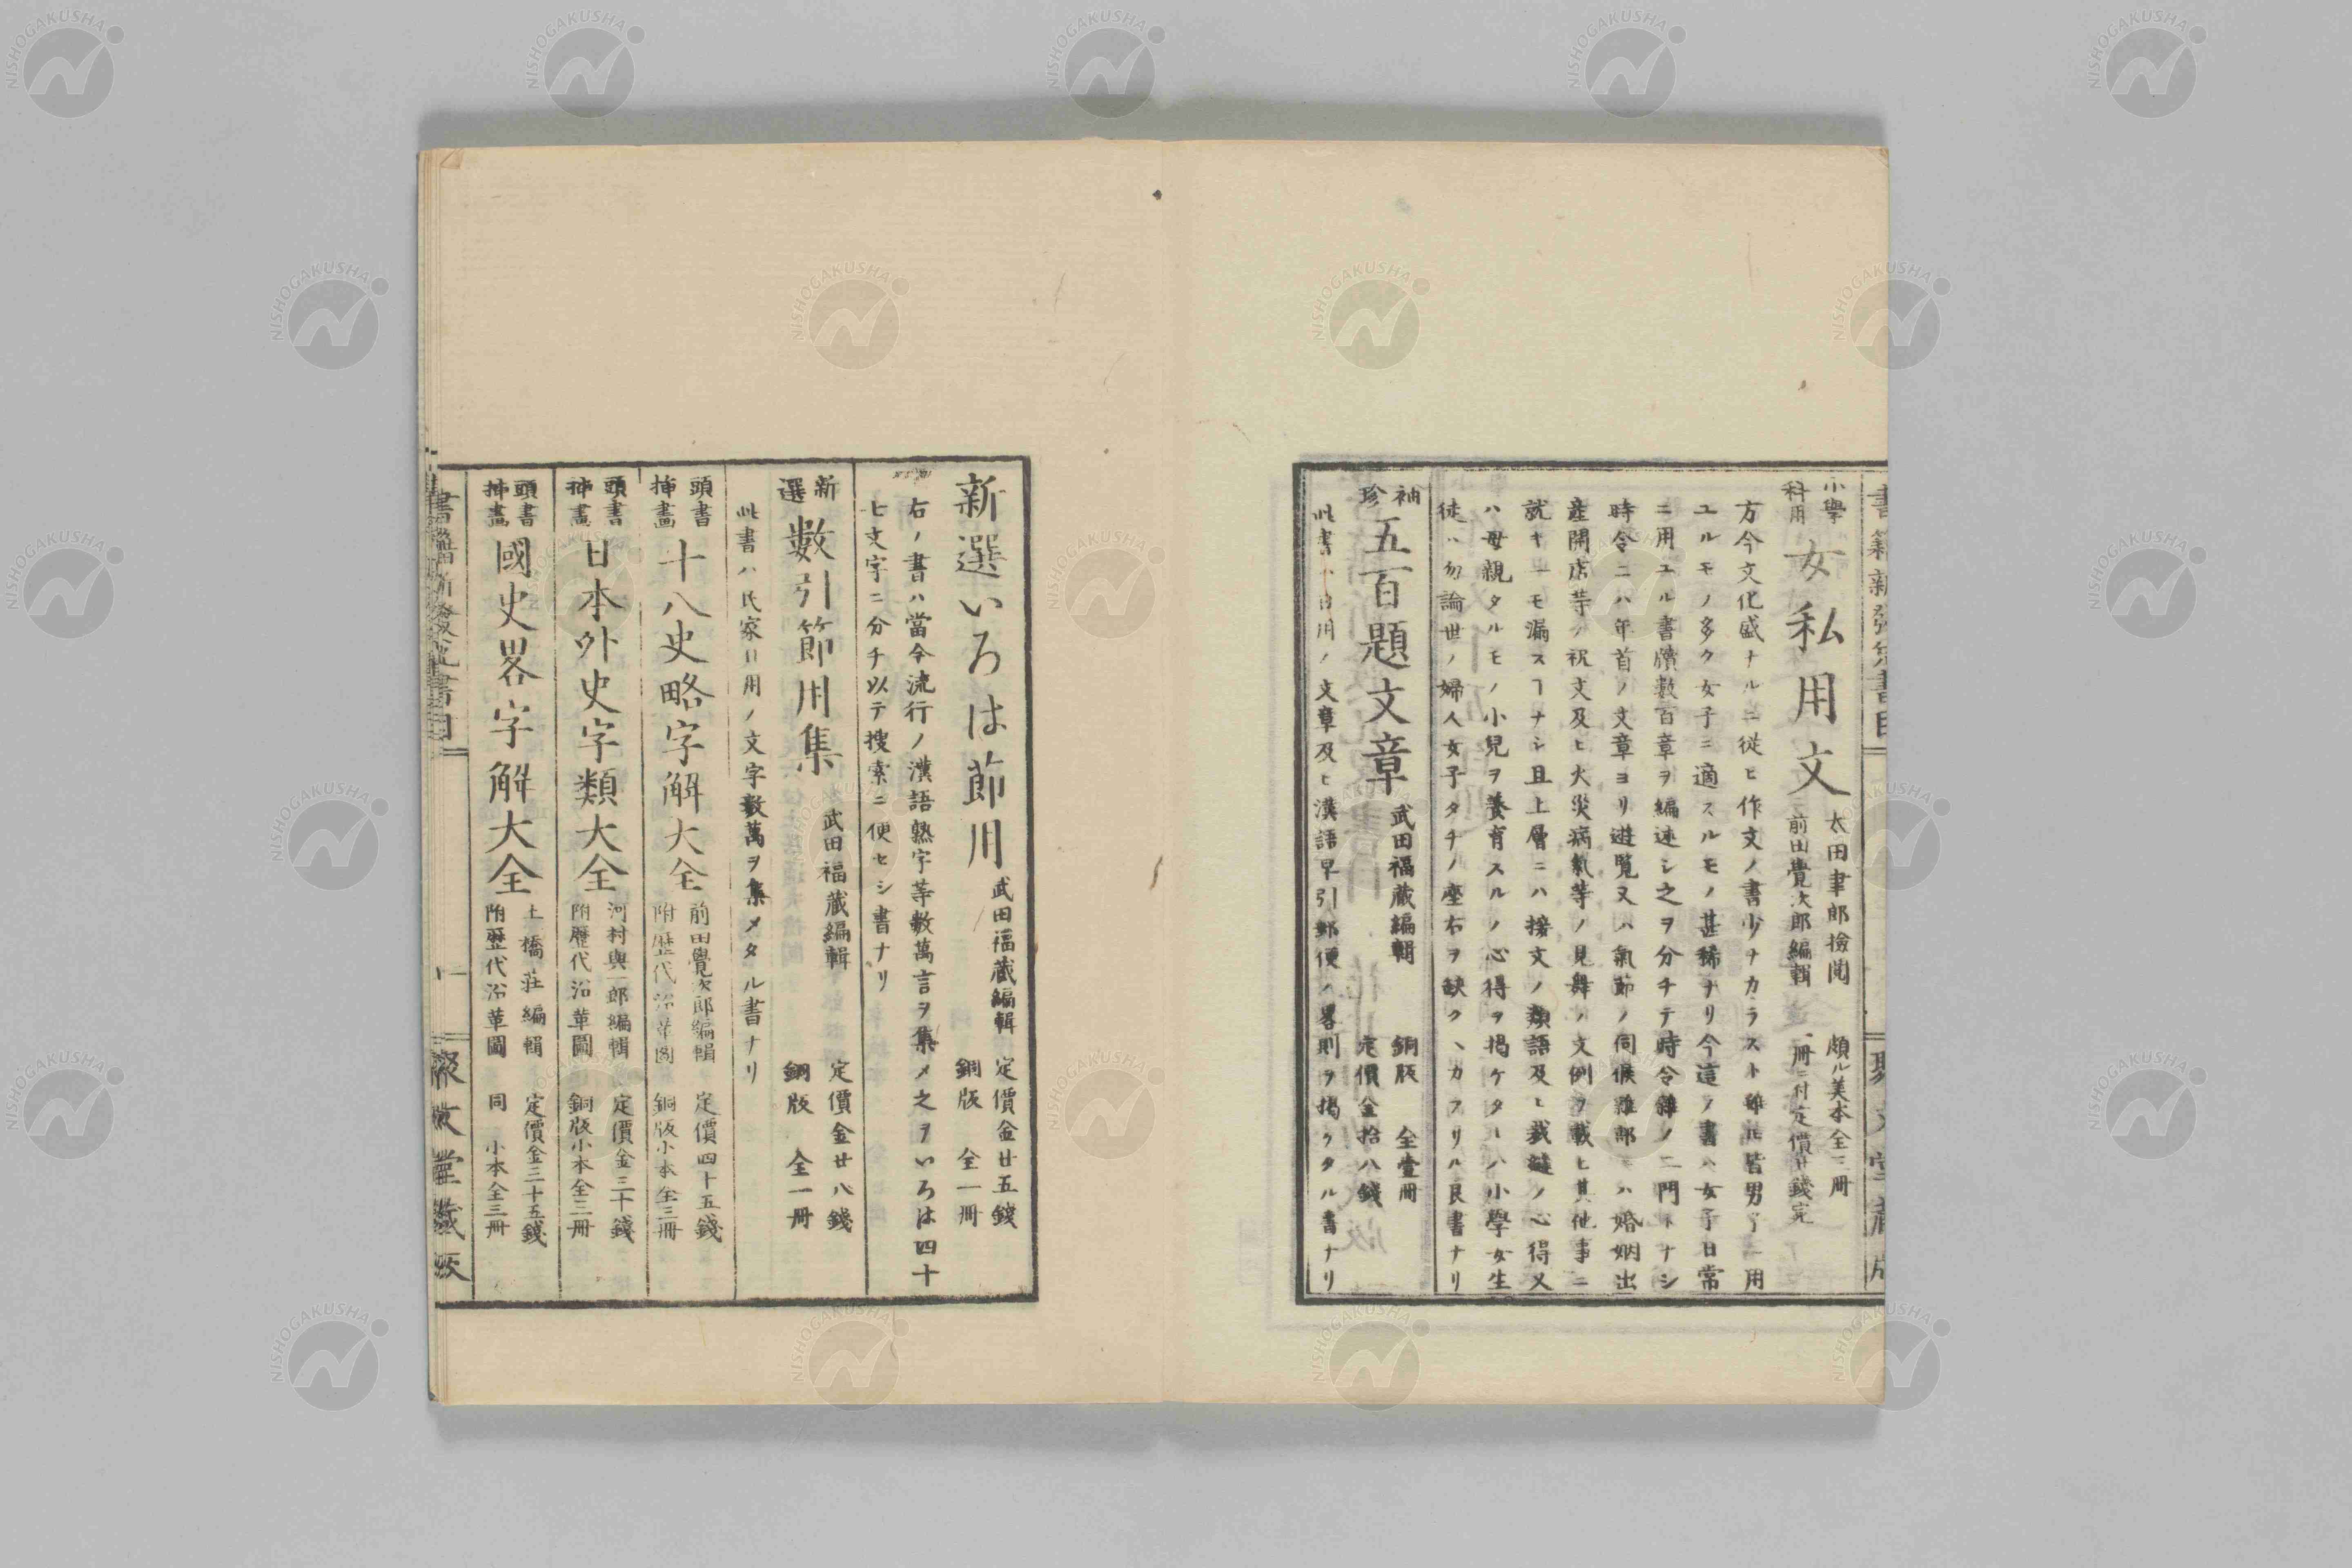 小學
科用
女私用文
太田聿郎撿閲
前田覺次郎編輯
頗ル美本全三冊
一冊ニ付定價廿錢完
方今文化盛ナルニ従ヒ作文ノ書少ナカラスト雖𪜈皆男子ノ用
ユルモノ多ク女子ニ適スルモノ甚稀ナリ今這ノ書ハ女子日常
ニ用ユル書牘數百章ヲ編述シ之ヲ分チテ時令雜ノ二門トナシ
時令ニハ年首ノ文章ヨリ遊覧又ハ氣節ノ伺候雜部ニハ婚姻出
産開店等ノ祝文及ヒ火災病氣等ノ見舞ノ文例ヲ載ヒ其他事ニ
就キ一モ漏スヿナシ且上層ニハ接文ノ類語及ヒ裁縫ノ心得又
ハ母親タルモノ小兒ヲ養育スルノ心得ヲ掲ケタレハ小學女生
徒ハ勿論世ノ婦人女子タチノ座右ヲ缺クヘカラサル良書ナリ
袖珍
五百題文章
武田福藏編輯
銅版 全壹冊
定價金拾八錢
此書ハ日用ノ文章及ヒ漢語早引郵便ノ畧則ヲ掲ケタル書ナリ
新選いろは節用
武田福藏編輯
定價金廿五錢
銅版 全一冊
右ノ書ハ當今流行ノ漢語熟字等數萬言ヲ集メ之ヲいろは四十
七文字ニ分チ以テ搜索ニ便セシ書ナリ
新選
數引節用集
武田福藏編輯
定價金廿八錢
銅版 全一冊
此書ハ民家日用ノ文字數萬ヲ集メタル書ナリ
頭書
挿畫
十八史略字解大全
前田覺次郎編輯
附歴代沿革圖
定價四十五錢
銅版小本全三冊
頭書
挿畫
日本外史字類大全
河村與一郎編輯
附歴代沿革圖
定價金三十錢
銅版小本全三冊
頭書
挿畫
國史畧字解大全
土橋莊編輯
附歴代沿革圖
定價金三十五錢
同 小本全三冊
NISHOGAKUSHA